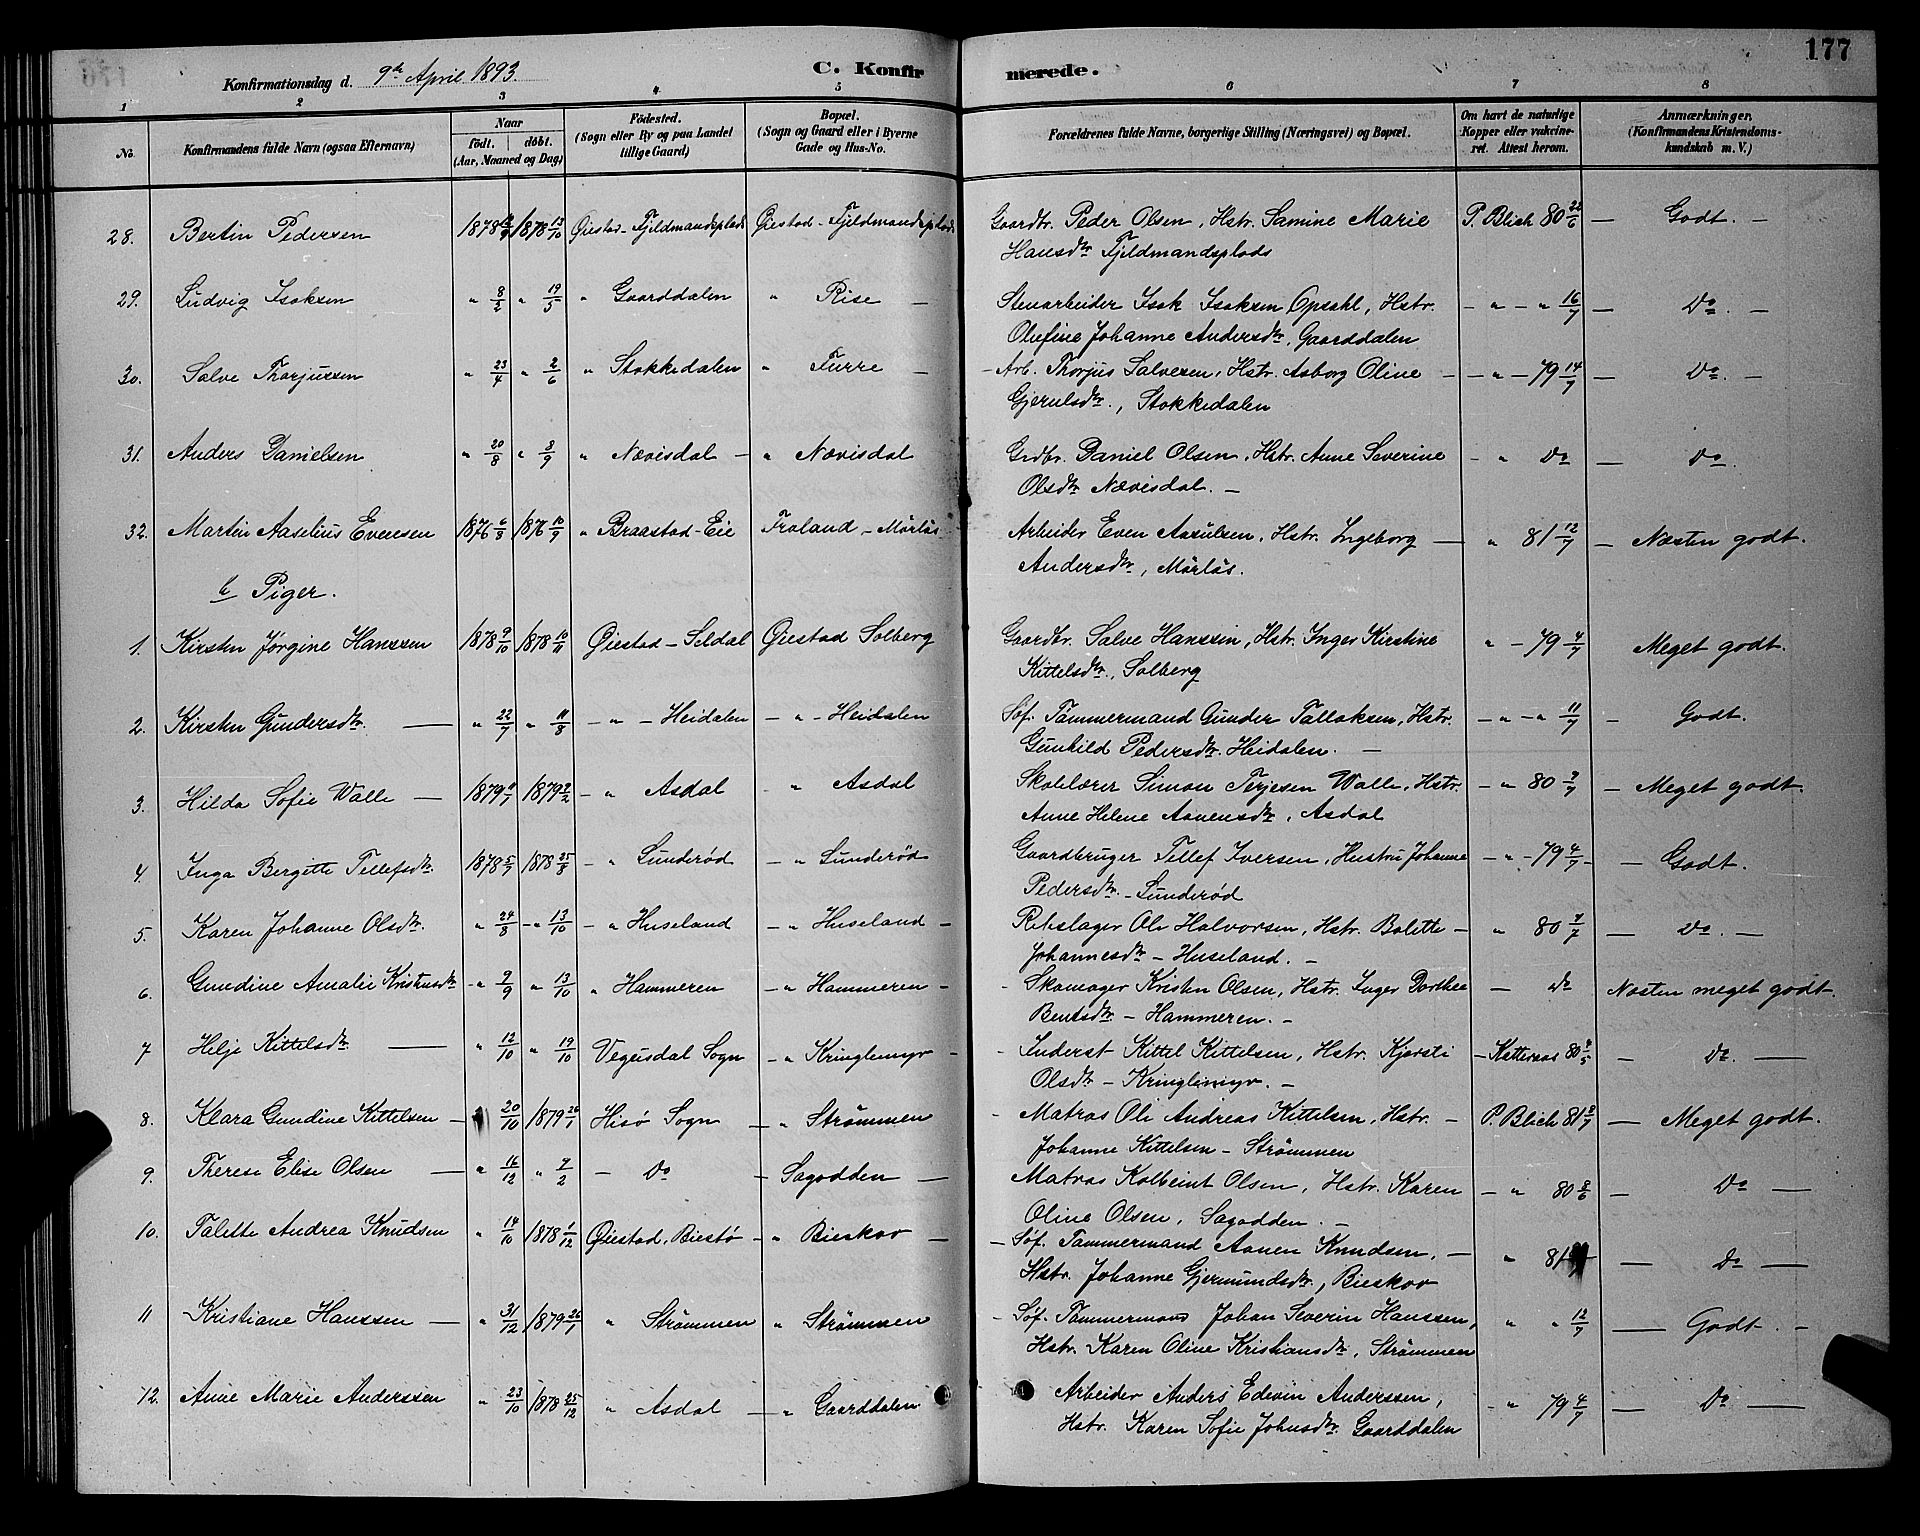 177
Konfirmationsdag d. 9de April 1893.
C. Konfirmerede.
1 2 3 4 5 6 7 8
No. Konfirmandens fulde Navn (ogsaa Efternavn) Naar født. døbt. (Aar, Maaned og Dag) Fødested. (Sogn eller By og paa Landet tillige Gaard) Bopæl. (Sogn og Gaard eller i Byerne Gade og Hus-No. Forældrenes fulde Navne, borgerlige Stilling (Næringsvei) og Bopæl. Om havt de naturlige Kopper eller vakcineret. Attest herom. Anmærkninger. (Konfirmandens Kristendomskundskab m. V.)
28. Bertin Pedersen 1878 1878 13/10 Øiestad - Fjeldmandsplads Øiestad - Fjeldmandsplads Gaardbr. Peder Olsen, Hstr. Samine Marie P. Blich 80 22/6 — Godt. —
Hansdtr Fjeldmandsplads
29. Ludvig Isaksen " 8/2 " 19/5 " Gaarddalen " Rise — Stenarbeider Isak Isaksen Opsahl, Hstr. - " - " 16/7 — Do. —
Olefine Johanne Andersdtr, Gaarddalen
30. Salve Thorjussen " 23/4 " 2/6 " Stokkedalen " Furre — Arb. Thorjus Salvesen, Hstr. Asborg Oline - " - 79 14/7 — Do. —
Gjerulsdtr., Stokkedalen
31. Anders Danielsen " 20/8 " 8/9 " Nævisdal — " Nævisdal Grdbr. Daniel Olsen, Hstr. Anne Severine - " do — Do.
Olsdtr Nævisdal. —
32. Martin Aaselius Evensen 1876 6/8 1876 10/9 " Braastad-Eie Froland - Mørlås Arbeider Even Aasulsen, Hstr. Ingeborg — " 81 12/7 — Næsten godt.
Andersdtr, Mørlås.
b Piger.
1. Kirsten Jørgine Hanssen 1878 9/10 1878 10/11 Øiestad - Seldal Øiestad Solberg Gaardbr. Salve Hanssen, Hstr. Inger Kirstine " - 79 4/7 Meget godt.
Kittelsdtr, Solberg
2. Kirsten Gundersdtr. — " 22/7 " 11/8 - " - Heidalen - " - Heidalen Søf. Tømmermand Gunder Tallaksen, Hstr. - " - " 11/7 — Godt.
Gunhild Pedersdtr. Heidalen. —
3. Hilda Sofie Walle — 1879 1879 2/2 - " Asdal " Asdal Skolelærer Simon Terjesen Walle, Hstr. - " 80 7/7 — Meget godt.
Anne Helene Aanensdtr, Asdal
4. Inga Bergitte Tellefsdtr. 1878 5/7 1878 25/8 - " Sunderød - " Sunderød Gaardbruger Tellef Iversen, Hustru Johanne - " - 79 4/7 - — Godt.
Pedersdtr. - Sunderød
5. Karen Johanne Olsdtr. " 24/8 - " 13/10 - " Huseland - " Huseland - Rebslager Ole Halvorsen, Hstr. Bolette - " 80 7/7 — do. —
Johannesdtr - Huseland. —
6. Gundine Amalie Kristensdtr - " 9/9 " 13/10 " Hammeren - " Hammeren - Skomager Kristen Olsen, Hstr. Inger Dorthea — do Næsten meget godt.
Bentsdtr. - Hammeren. —
7 Helje Kittelsdtr — " 12/10 " 19/10 Vegusdal Sogn - " Kringlemyr - Inderst Kittel Kittelsen, Hstr. Kjersti - 80 4/5 — Do. —
Olsdtr - Kringlemyr. —
8. Klara Gundine Kittelsen - 20/10 1879 26/1 Hisø Sogn - " Strømmen - Matros Ole Andreas Kittelsen, Hstr. - P. Blich 81 8/7 — Meget godt.
Johanne Kittelsen - Strømmen
9. Therese Elise Olsen — " 16/12 " 7/2 - Do - Sagodden — Matros Kolbeint Olsen, Hstr. Karen - " 80 8/6 — Do —
Oline Olsen, Sagodden. —
10. Talette Andrea Knudsen " 14/10 1878 1/12 Øiestad, Biestø - " Bieskov — Søf. Tømmermand Aanen Knudsen, — " 81 — Do —
Hstr. Johanne Gjermundsdtr, Bieskov
11 Kristiane Hanssen — " 31/12 1879 26/1 " Strømmen " Strømmen - Søf. Tømmermand Johan Severin Hanssen, " " 12/7 — Godt. —
Hstr. Karen Oline Kristiansdtr, Strømmen
12. Anne Marie Anderssen " 23/10 1878 25/12 " Asdal — " Gaarddalen Arbeider Anders Edevin Anderssen, - " 79 4/7 — Do —
Hstr. Karen Sofie Johnsdtr. Gaarddalen